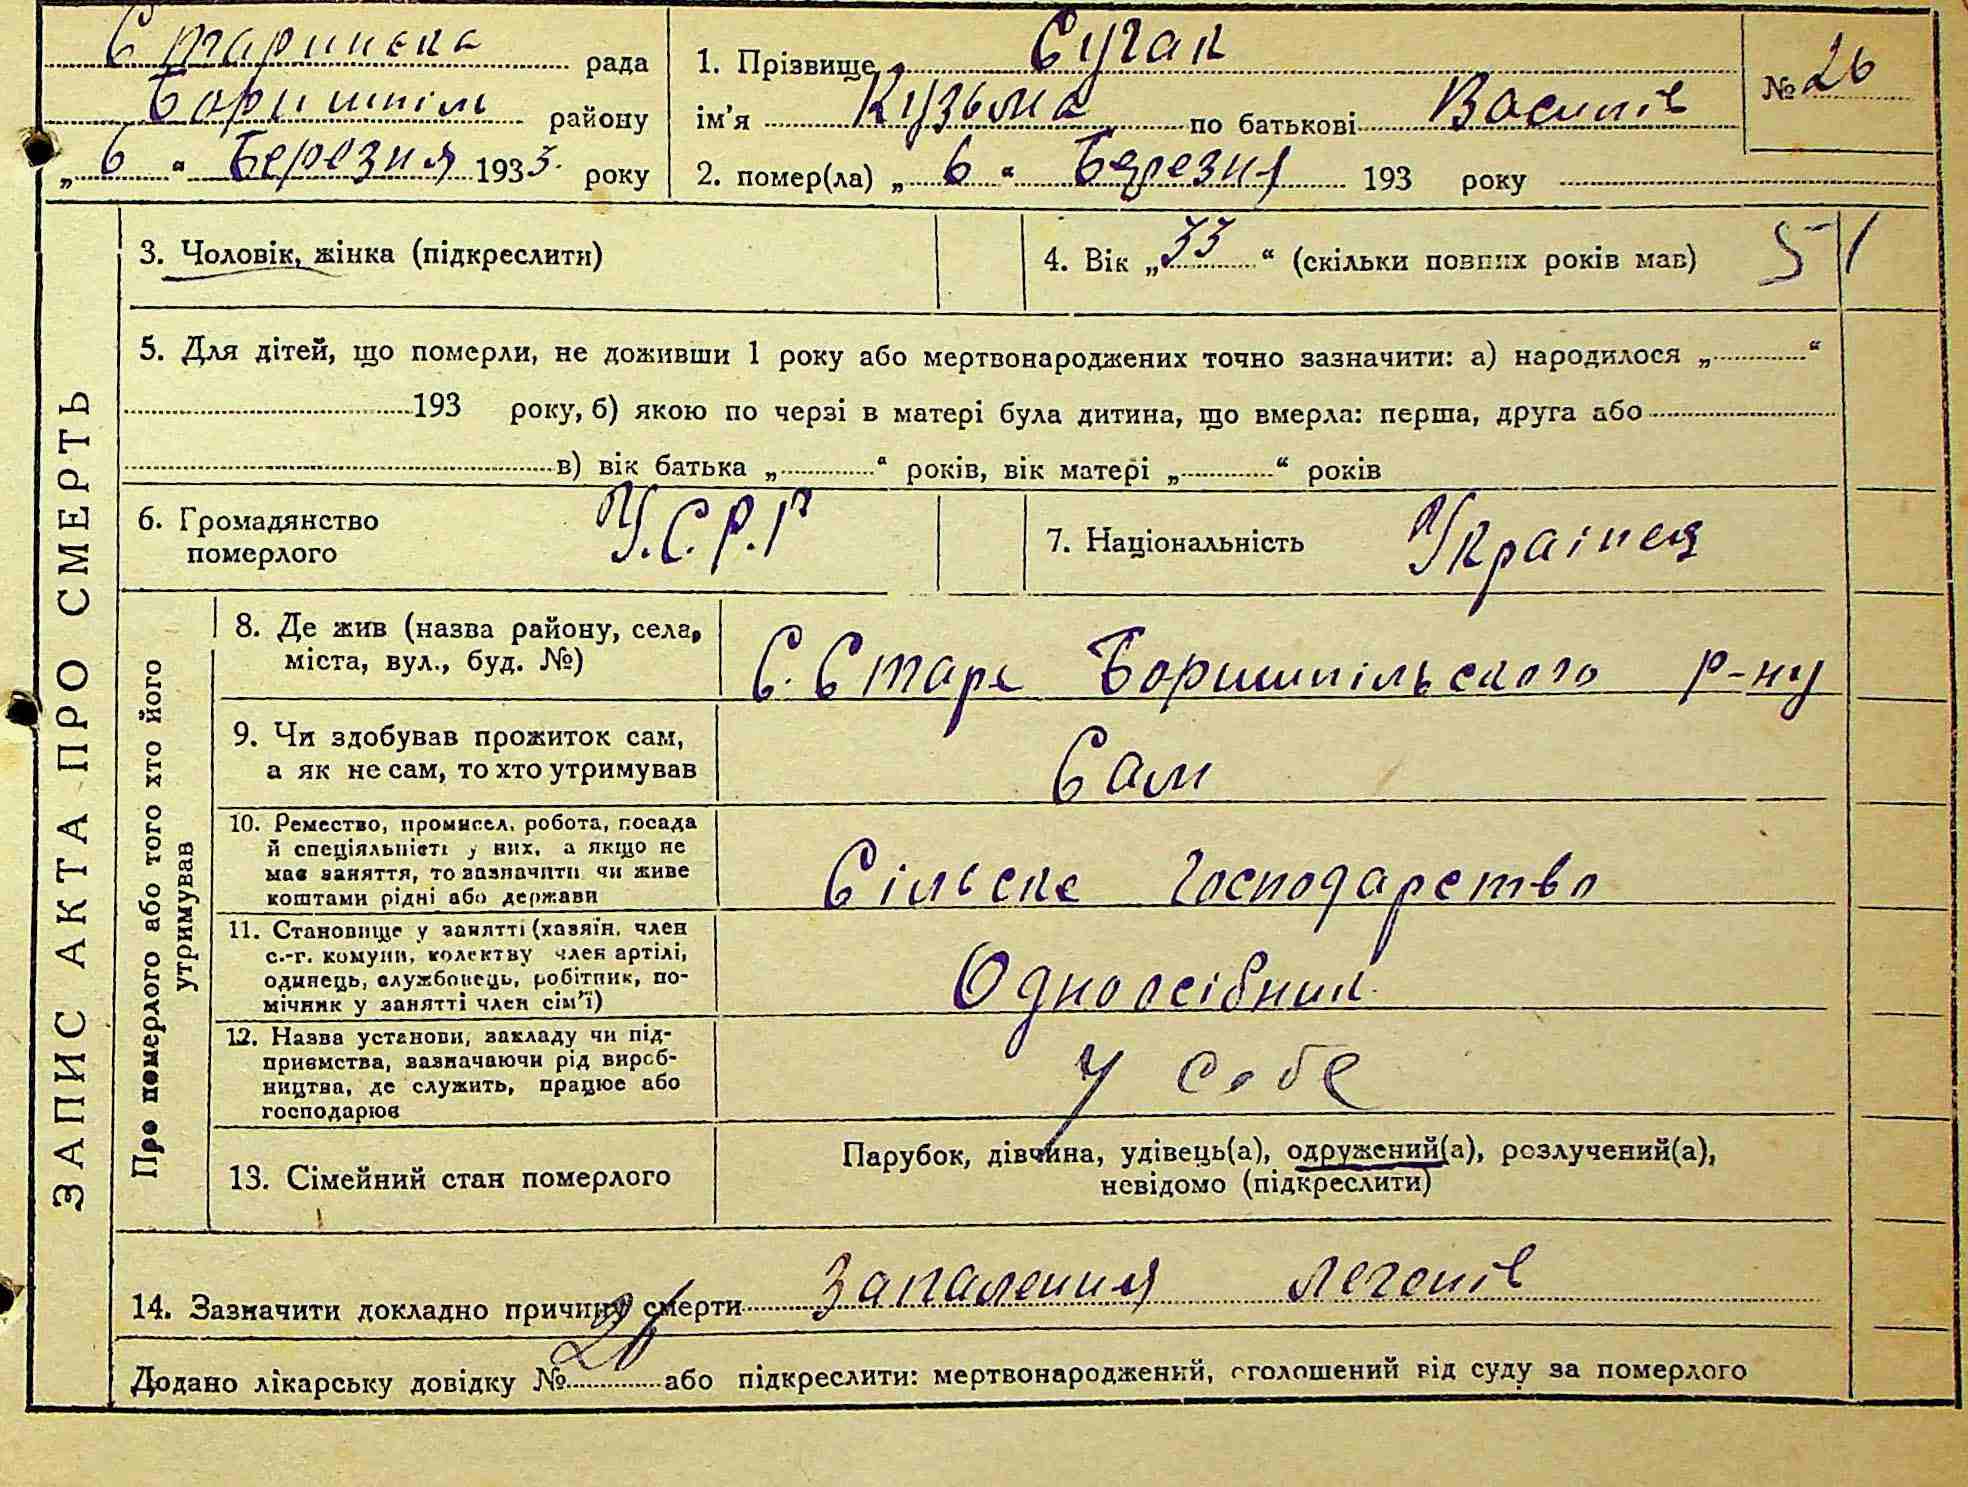 Старинска рада
Боришпіль району
„ 6 “ Березня 1933. року
1. Прізвище Сугак
ім'я Кузьма по батькові Василів
№ 26
2. помер(ла) „ 6 “ Березня 193 року
ЗАПИС АКТА ПРО СМЕРТЬ
3. Чоловік, жінка (підкреслити)
4. Вік „ 33 “ (скільки повних років мав)
51
5. Для дітей, що померли, не доживши 1 року або мертвонароджених точно зазначити: а) народилося „ “
193 року, б) якою по черзі в матері була дитина, що вмерла: перша, друга або
в) вік батька „ “ років, вік матері „ “ років
6. Громадянство
померлого
У.С.Р.Р
7. Національність Українец
Про померлого або того хто його
утримував
8. Де жив (назва району, села,
міста, вул., буд. №)
С. Старе Боришпільского р-ну
9. Чи здобував прожиток сам,
а як не сам, то хто утримував
Сам
10. Ремество, промисел, робота, посада
й спеціяльність у них, а якщо не
має заняття, то зазначити чи живе
коштами рідні або держави
Сільске господарство
11. Становище у занятті (хазяїн, член
с.-г. комуни, колективу член артілі,
одинець, службовець, робітник, по-
мічник у занятті член сім'ї)
Одноосібник
12. Назва установи, закладу чи під-
приємства, зазначаючи рід вироб-
ництва, де служить, працює або
господарює
у себе
13. Сімейний стан померлого
Парубок, дівчина, удівець(а), одружений(а), розлучений(а),
невідомо (підкреслити)
14. Зазначити докладно причину смерти Запалення легенів
Додано лікарську довідку № 26 або підкреслити: мертвонароджений, оголошений від суду за померлого